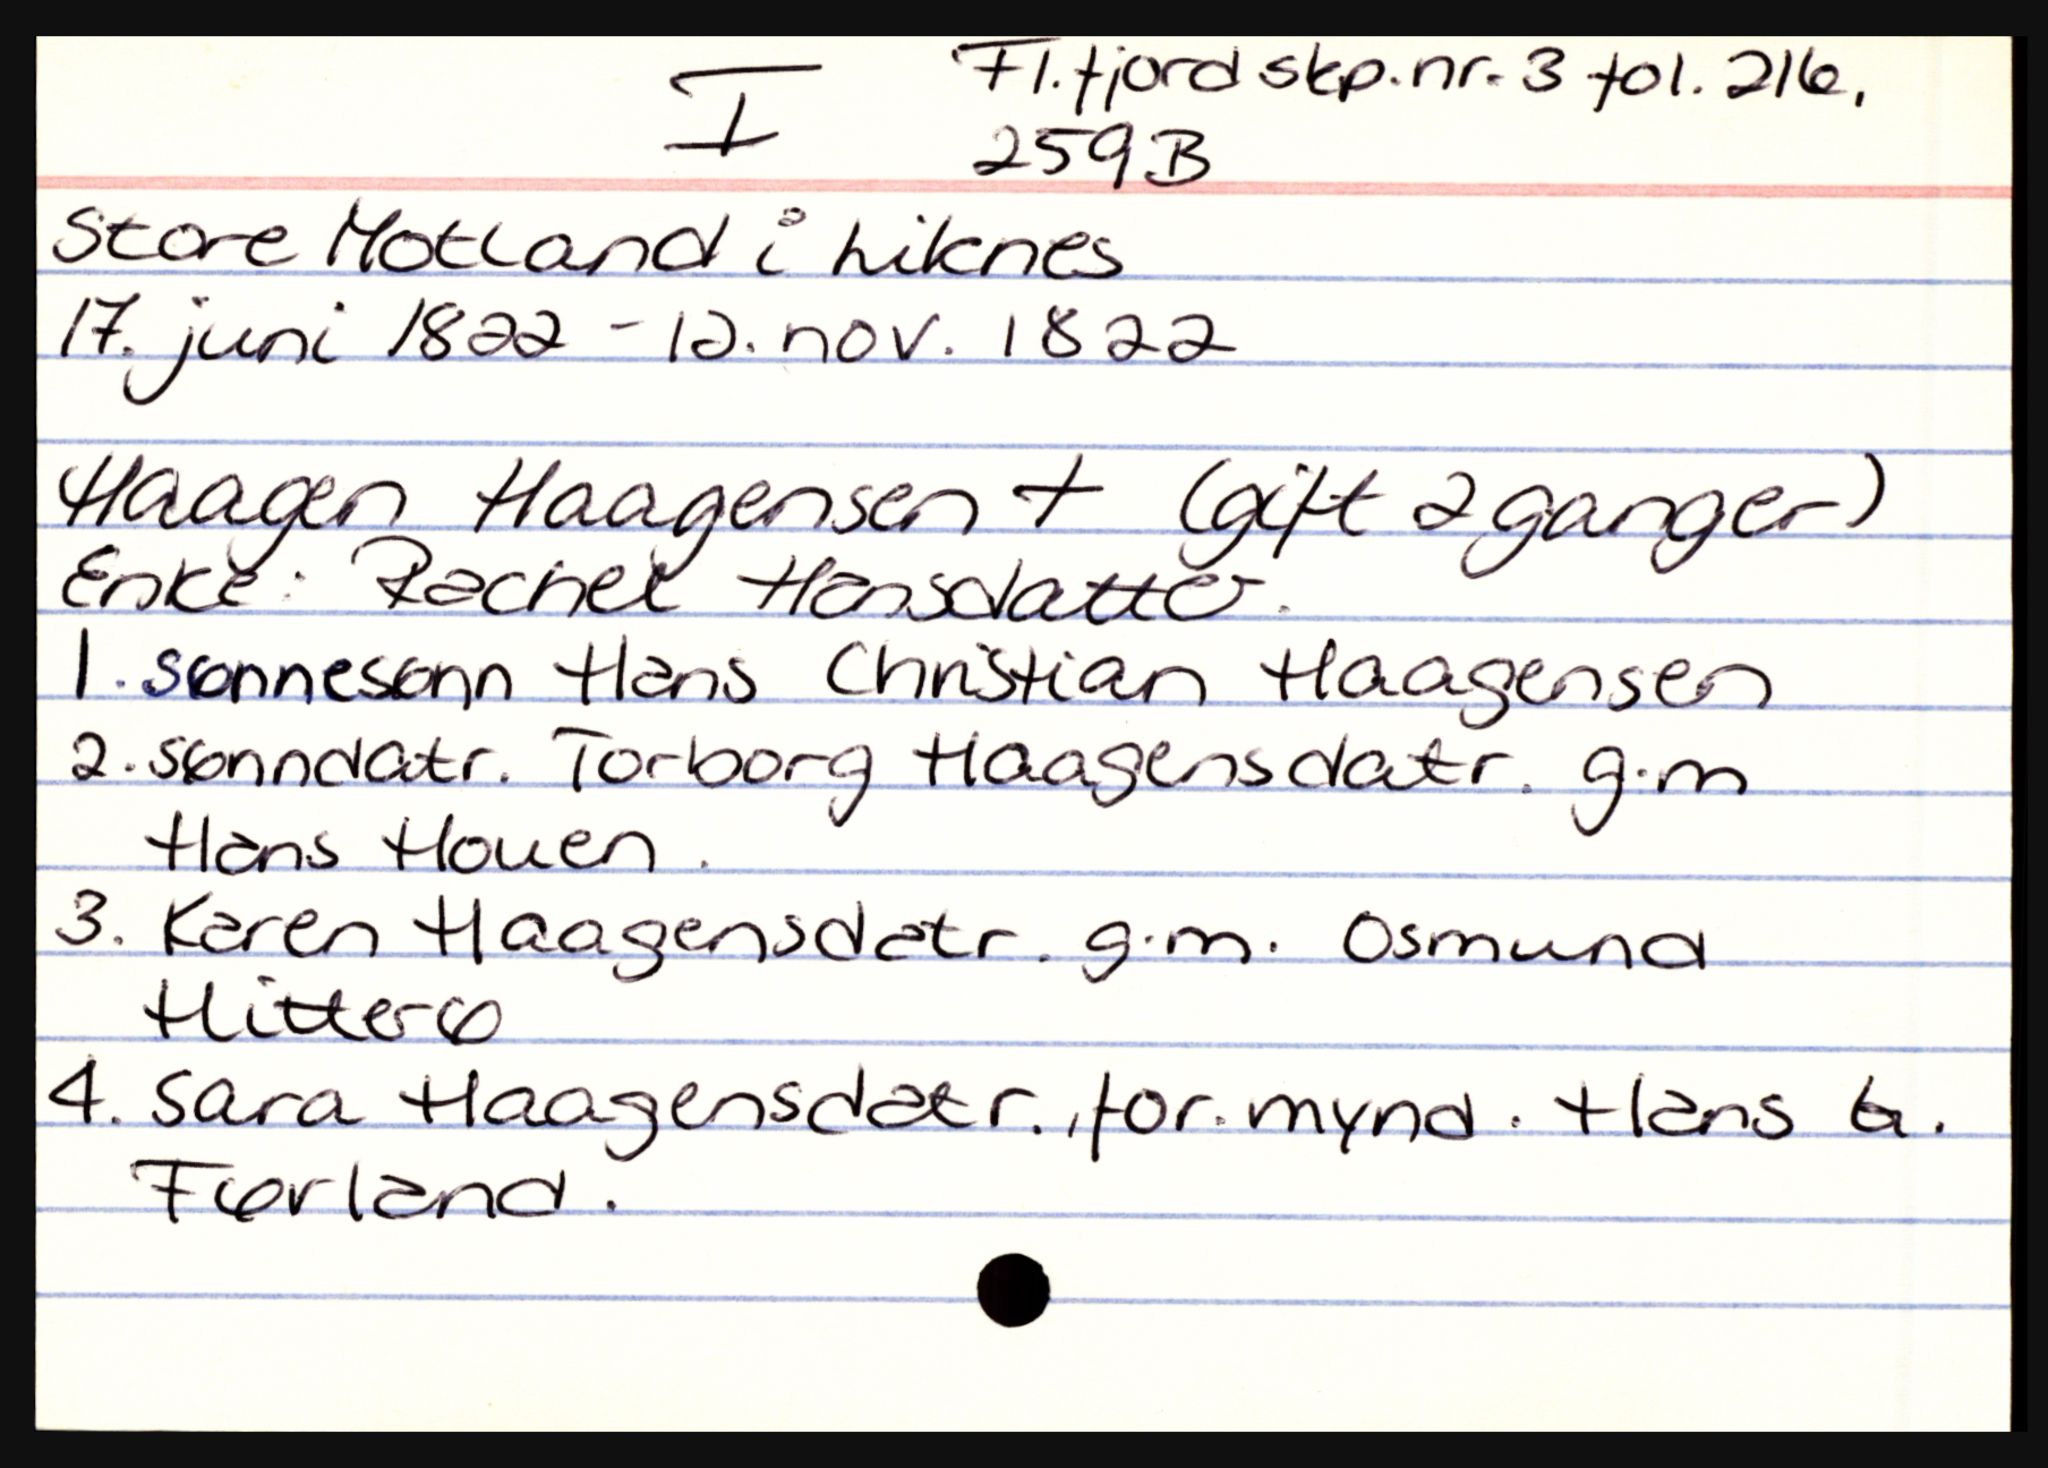 I Fl.fjord skp.nr. 3 fol. 216,
259B
Store Motland i Liknes
17. juni 1822 - 12. nov. 1822
Haagen Haagensen + (gift 2 ganger)
Enke: Rachel Hansdatter.
1. sønnesønn Hans Christian Haagensen
2. sønndatr. Torborg Haagensdatr. g.m
Hans Houen.
3. Karen Haagensdatr. g.m. Osmund
Hitterø
4. Sara Haagensdatr., for.mynd. Hans G.
Førland.